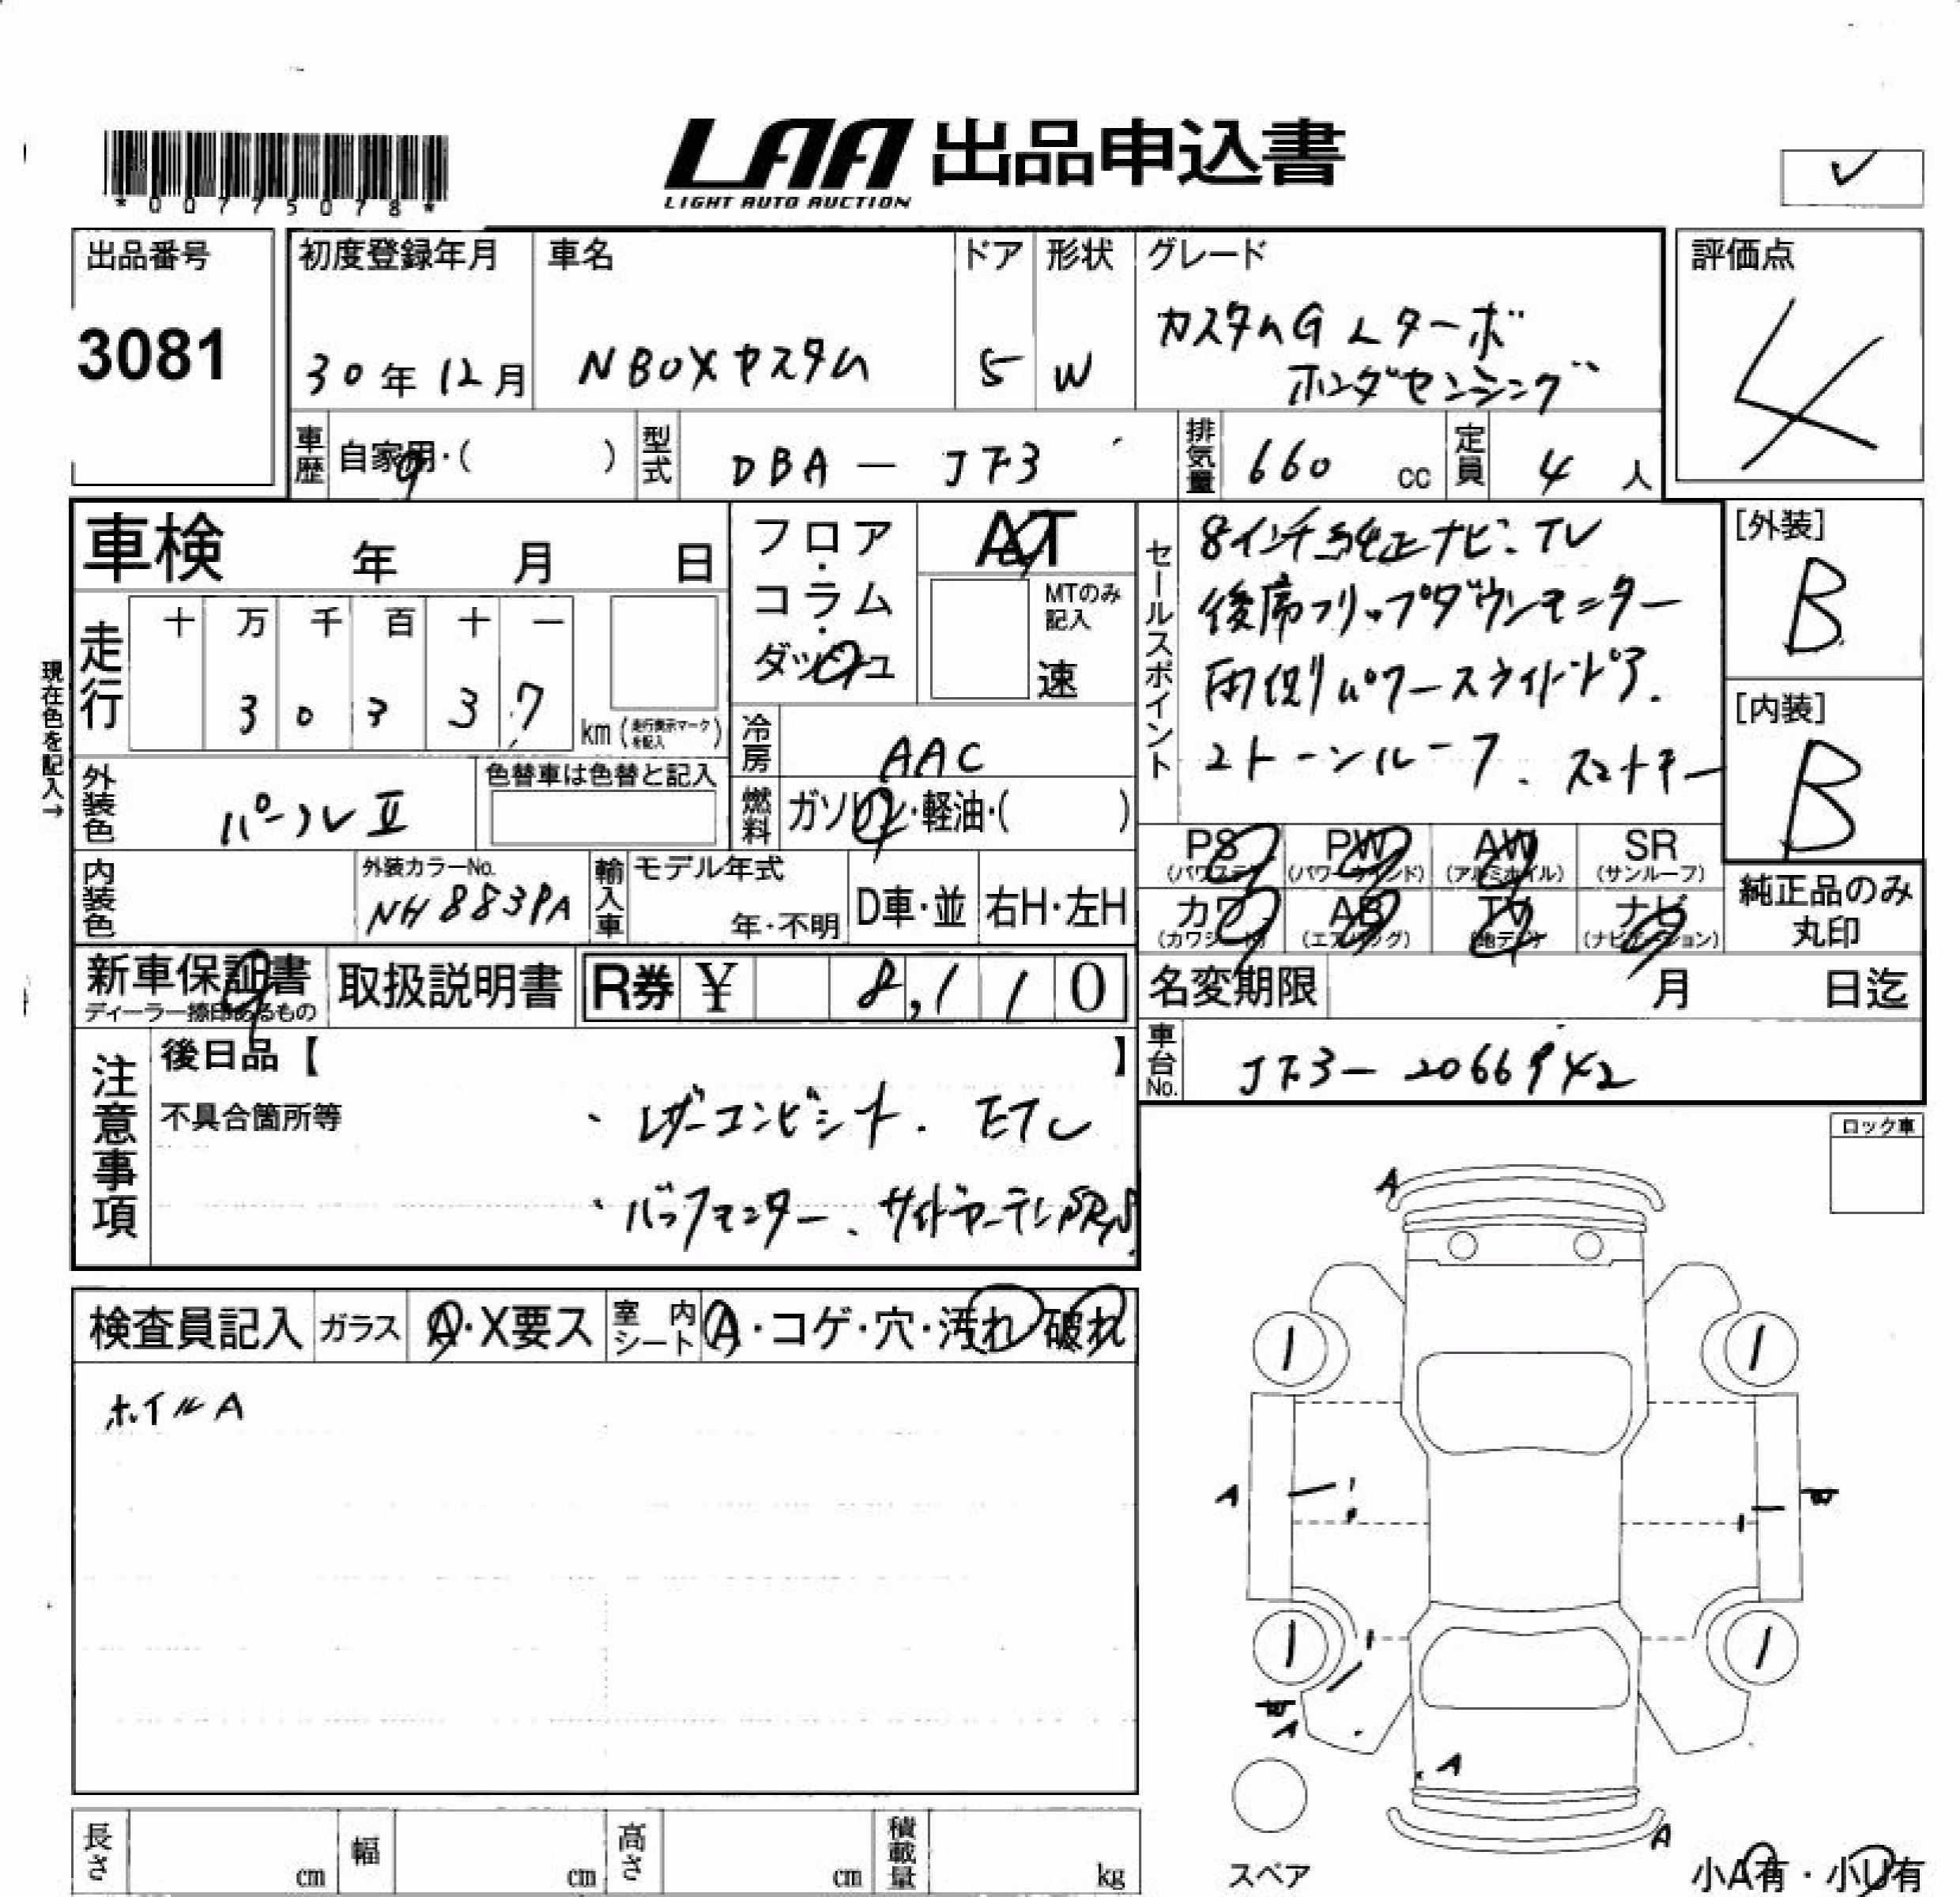 *00775078*
LAA 出品申込書
LIGHT AUTO AUCTION
✓
出品番号
3081
初度登録年月
30年12月
車名
NBOXカスタム
ドア
5
形状
W
グレード
カスタムG Lターボ
ホンダセンシング
評価点
4
車歴
自家用・( )
型式
DBA-JF3
排気量
660 cc
定員
4 人
車検 年 月 日
フロア・コラム・ダッシュ
AT
MTのみ記入
速
セールスポイント
8インチ純正ナビ.TV
後席フリップダウンモニター
両側パワースライドドア.
2トーンルーフ.スマートキー
[外装]
B
[内装]
B
現在色を記入→
走行
十 万 千 百 十 一
3 0 3 3 7
km(走行表示マークを記入)
冷房
AAC
外装色
パールⅡ
色替車は色替と記入
燃料
ガソリン・軽油・( )
内装色
外装カラーNo.
NH883PA
輸入車
モデル年式
年・不明
D車・並
右H・左H
PS
(パワステ)
PW
(パワーウインド)
AW
(アルミホイル)
SR
(サンルーフ)
カワ
(カワシート)
AB
(エアバッグ)
TV
(地デジ)
ナビ
(ナビゲーション)
純正品のみ
丸印
新車保証書
ディーラー捺印あるもの
取扱説明書
R券 ¥ 8,110
名変期限 月 日迄
車台No.
JF3-2066942
注意事項
後日品【 】
不具合箇所等
・レザーコンビシート. ETC
・バックモニター、
ロック車
検査員記入
ガラス
A・X要ス
室内シート
A・コゲ・穴・汚れ 破れ
ホイルA
A
A
A
A
A
スペア
小A有・小U有
長さ cm
幅 cm
高さ cm
積載量 kg